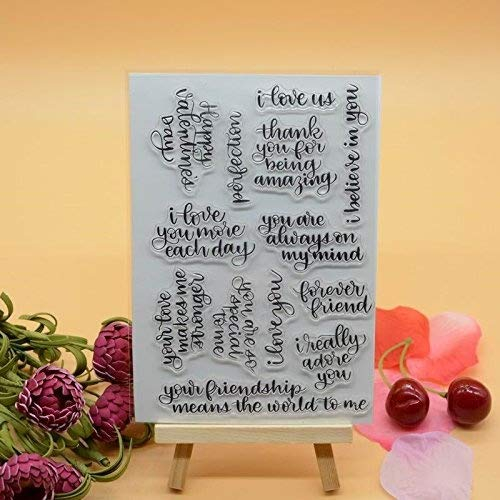 happy
valentine's
day
perfection
i love us
thank
you for
being
amazing
i believe in you
i love
you more
each day
you are
always on
my mind
your love
makes me
stronger
you are so
special
to me
i love you
forever
friend
i really
adore
you
your friendship
means the world to me